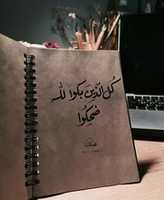 كُل الّذينَ بكوا للّه
ضَحِكُوا